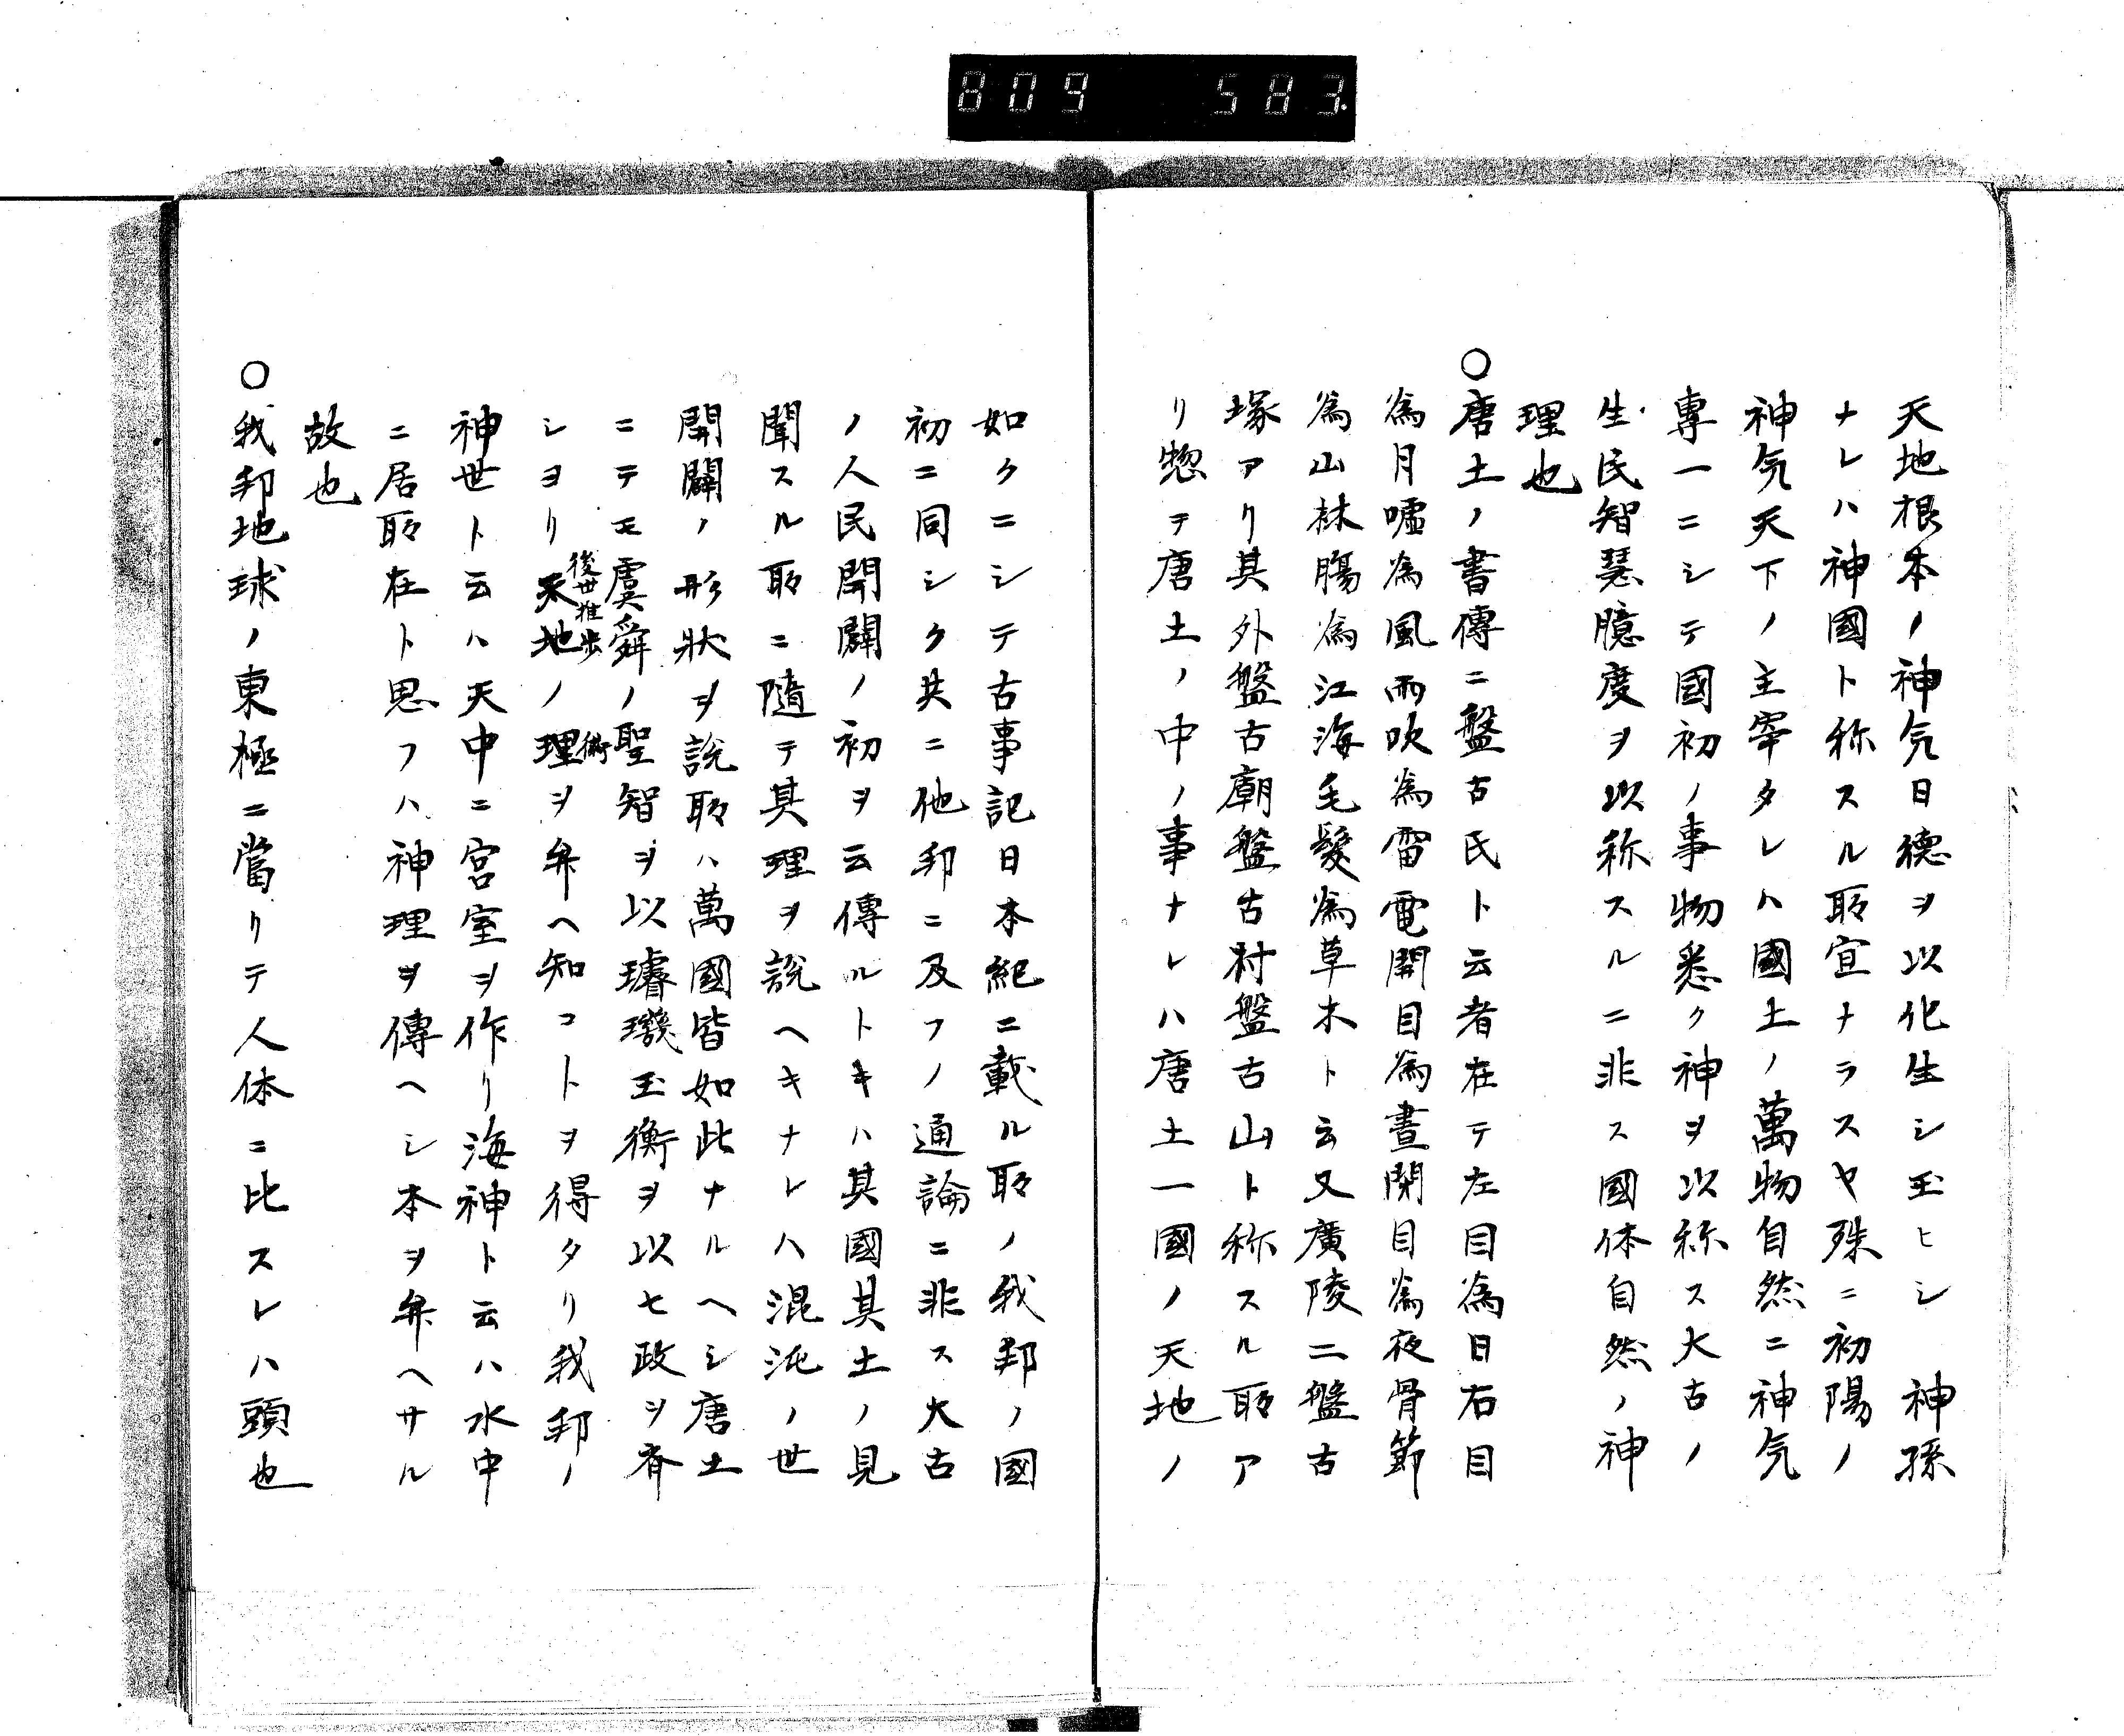 809 583.
天地根本ノ神気日徳ヲ以化生シ玉ヒシ 神孫
ナレハ神國ト称スル所宜ナラスヤ殊ニ初陽ノ
神気天下ノ主宰タレハ國土ノ萬物自然ニ神気
專一ニシテ國初ノ事物悉ク神ヲ以称ス大古ノ
生民智慧臆度ヲ以称スルニ非ス國体自然ノ神
理也
○唐土ノ書傳ニ盤古氏ト云者在テ左目為日右目
為月嘘為風雨吹為雷電開目為晝閉目為夜骨節
為山林腸為江海毛髮為草木ト云又廣陵ニ盤古
塚アリ其外盤古廟盤古村盤古山ト称スル所ア
リ惣テ唐土ノ中ノ事ナレハ唐土一國ノ天地ノ
如クニシテ古事記日本紀ニ載ル所ノ我邦ノ國
初ニ同シク共ニ他邦ニ及フノ通論ニ非ス大古
ノ人民開闢ノ初ヲ云傳ルトキハ其國其土ノ見
聞スル所ニ隨テ其理ヲ説ヘキナレハ混沌ノ世
開闢ノ形狀ヲ説所ハ萬國皆如此ナルヘシ唐土
ニテモ虞舜ノ聖智ヲ以璿璣玉衡ヲ以七政ヲ齊
後世推歩 術
シヨリ天地ノ理ヲ弁ヘ知コトヲ得タリ我邦ノ
神世ト云ハ天中ニ宮室ヲ作リ海神ト云ハ水中
ニ居所在ト思フハ神理ヲ傳ヘシ本ヲ弁ヘサル
故也
○我邦地球ノ東極ニ當リテ人体ニ比スレハ頭也